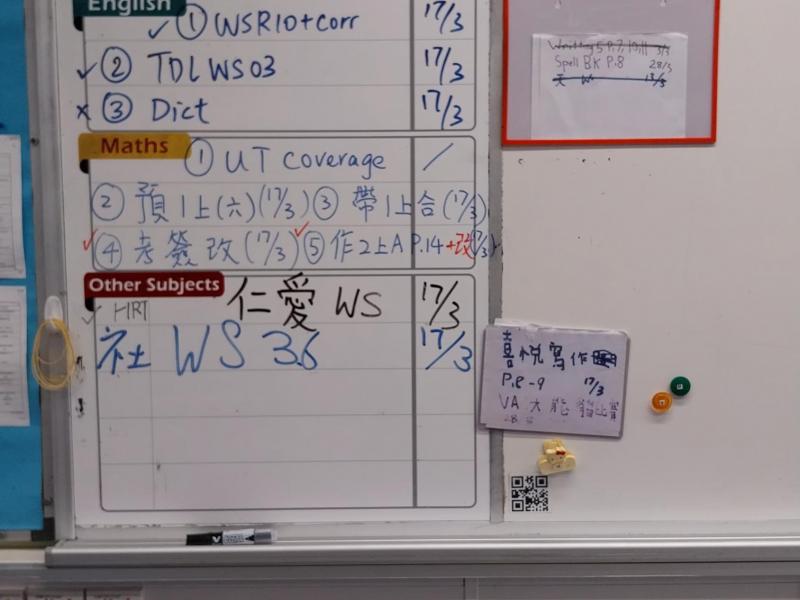 English
✓ ① WSR10+corr 17/3
✓ ② TDLWS03 17/3
× ③ Dict 17/3
Maths
① UT coverage /
② 預1上(六)(17/3) ③ 帶1上合(17/3)
✓ ④ 考簽改(17/3) ✓ ⑤ 作2上A P.14+改(17/3)
Other Subjects
✓ HRT 仁愛 WS 17/3
社 WS 36 17/3
Spell BK P.8 28/3
喜悅寫作
P.8-9 17/3
VA 大能 比賽